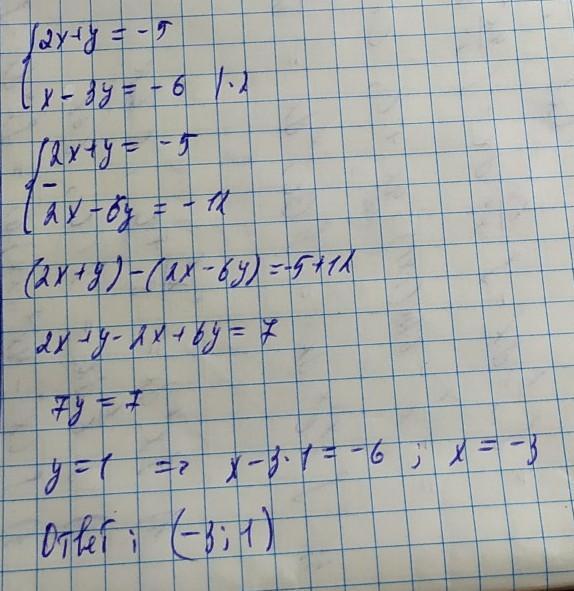 2x+y = -5
x - 3y = -6 |·2
2x+y = -5
-
2x - 6y = -12
(2x+y) - (2x-6y) = -5+12
2x+y-2x+6y = 7
7y = 7
y = 1 => x-3·1 = -6 ; x = -3
Ответ: (-3;1)